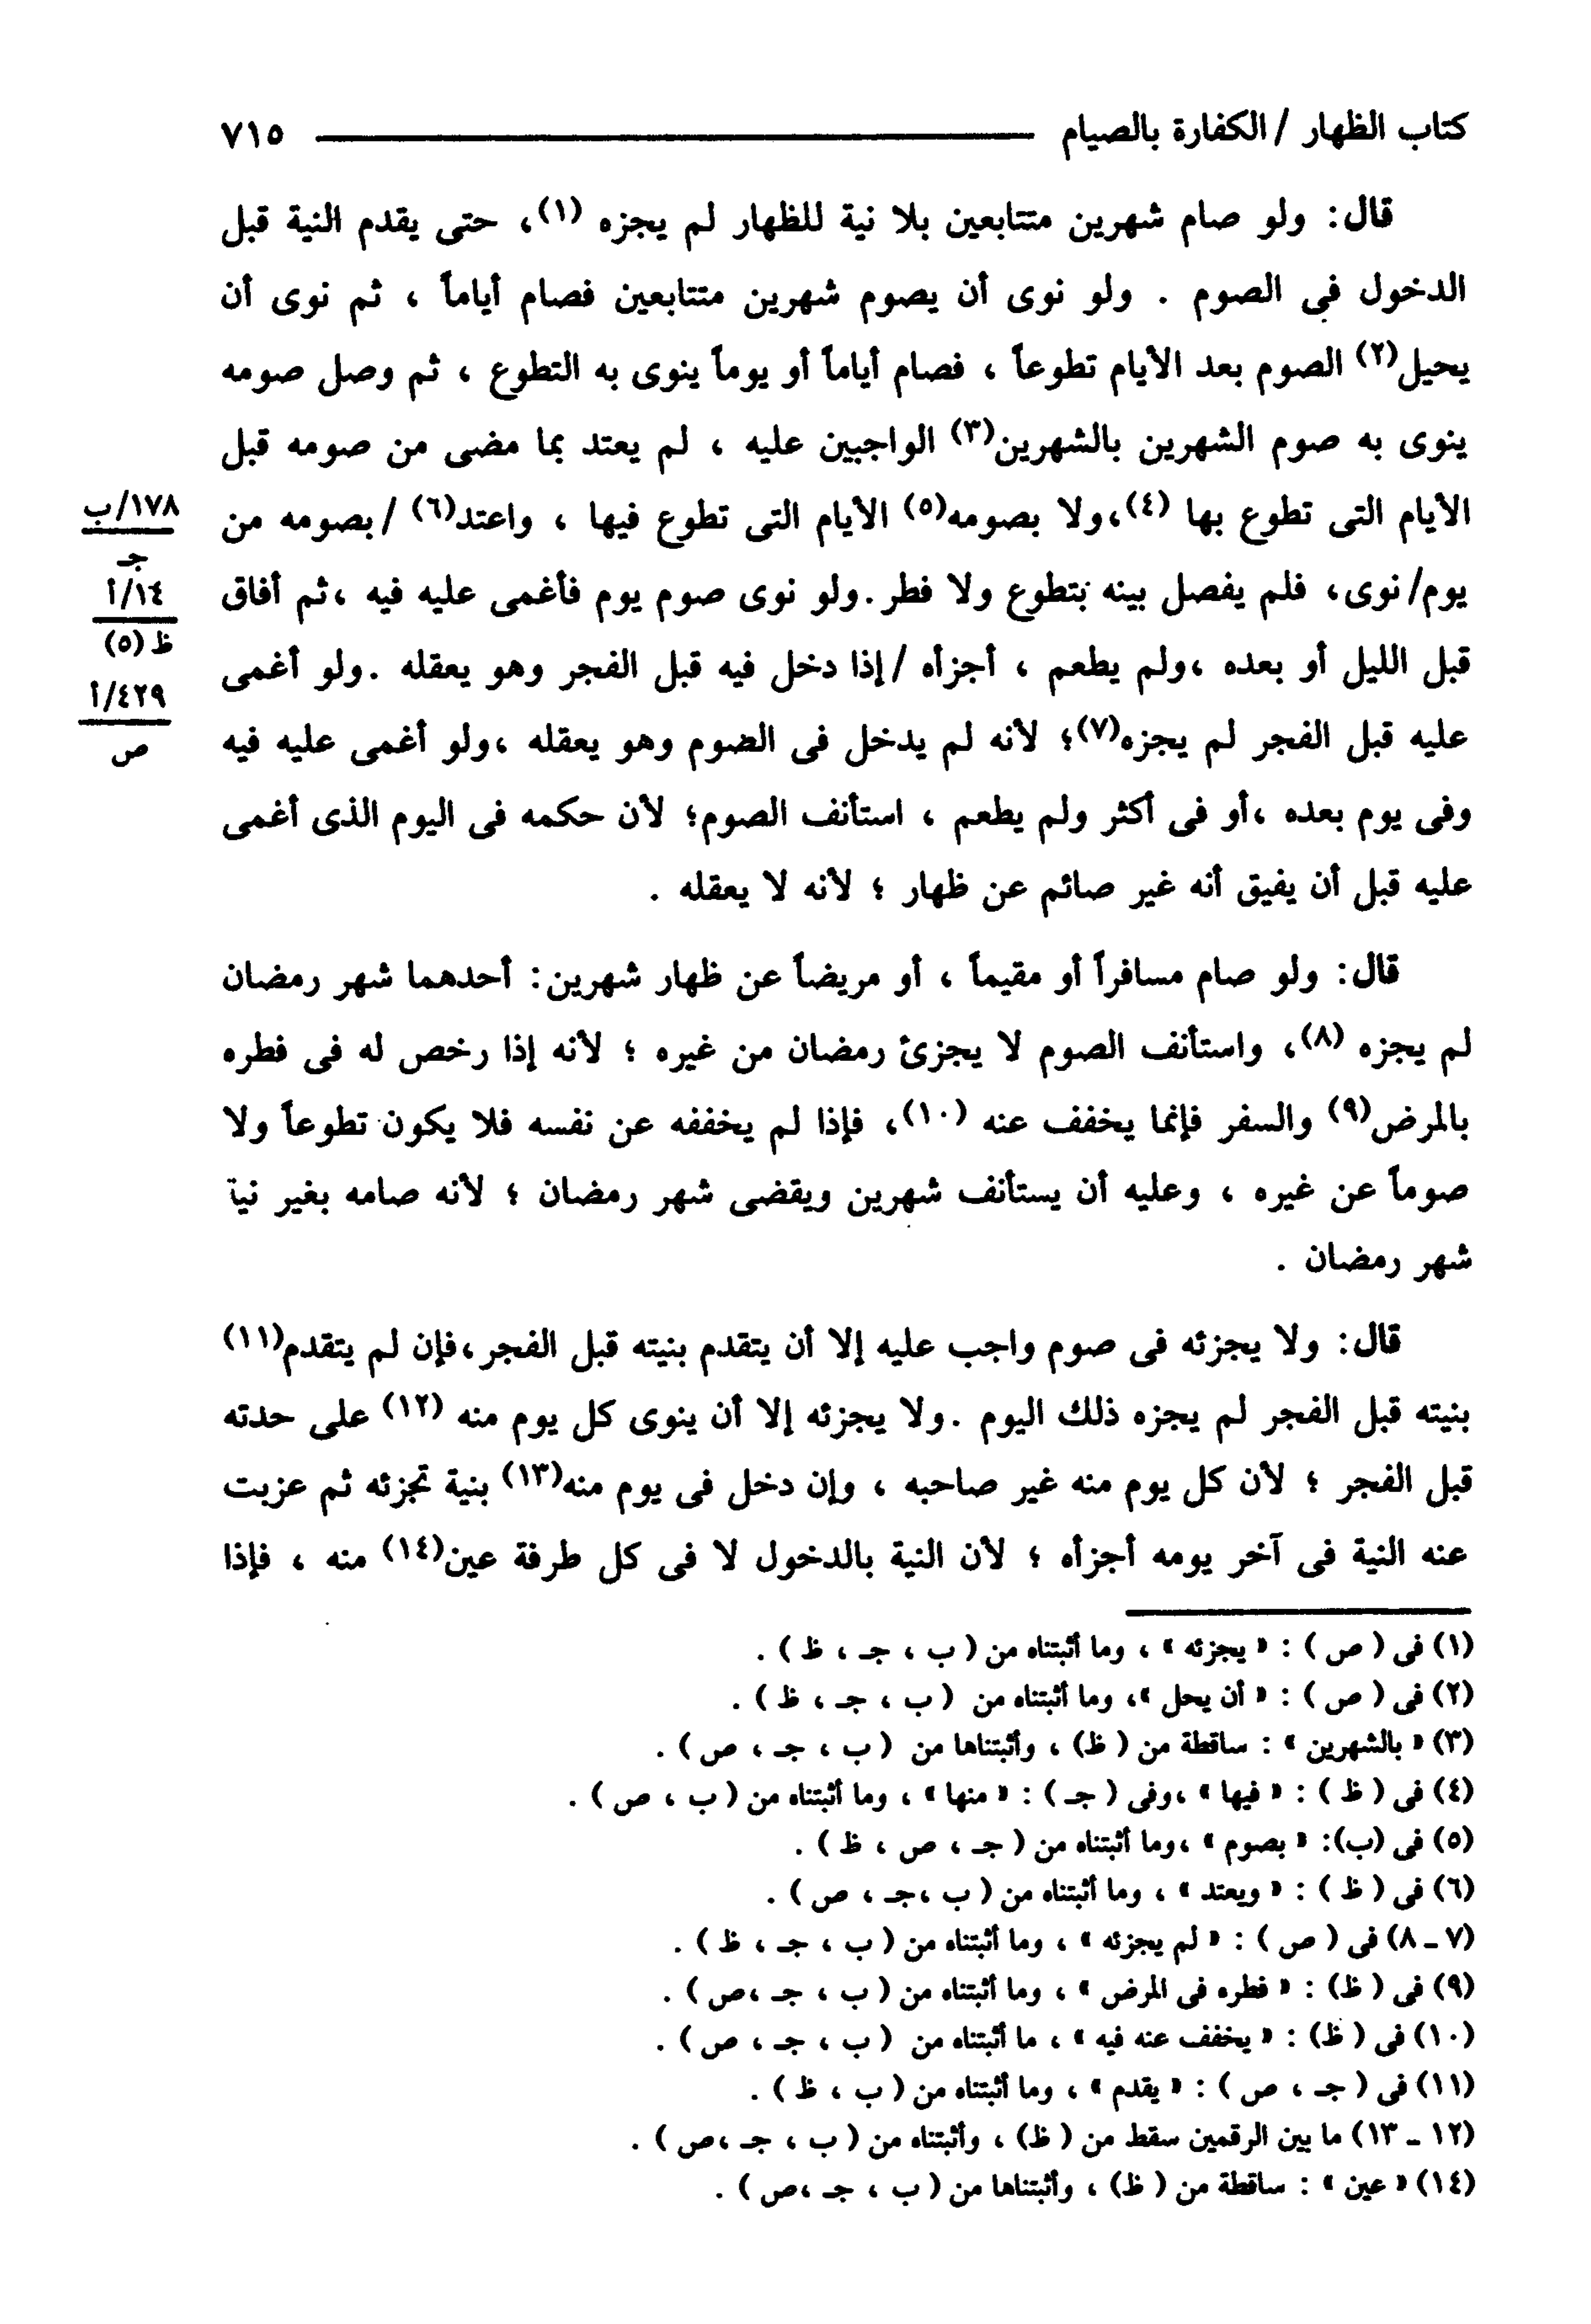 كتاب الظهار / الكفارة بالصيام ــــــــــــــــــــ ٧١٥
قال: ولو صام شهرين متتابعين بلا نية للظهار لم يجزه (١)، حتى يقدم النية قبل
الدخول فى الصوم . ولو نوى أن يصوم شهرين متتابعين فصام أياماً ، ثم نوى أن
يحيل(٢) الصوم بعد الأيام تطوعاً ، فصام أياماً أو يوماً ينوى به التطوع ، ثم وصل صومه
ينوى به صوم الشهرين بالشهرين(٣) الواجبين عليه ، لم يعتد بما مضى من صومه قبل
الأيام التى تطوع بها (٤)،ولا بصومه(٥) الأيام التى تطوع فيها ، واعتد(٦) /بصومه من
١٧٨/ب
جـ
يوم/نوى، فلم يفصل بينه بتطوع ولا فطر.ولو نوى صوم يوم فأغمى عليه فيه ،ثم أفاق
١٤/أ
ظ(٥)
قبل الليل أو بعده ،ولم يطعم ، أجزأه /إذا دخل فيه قبل الفجر وهو يعقله .ولو أغمى
٤٢٩/أ
ص
عليه قبل الفجر لم يجزه(٧)؛ لأنه لم يدخل فى الصوم وهو يعقله ،ولو أغمى عليه فيه
وفى يوم بعده ،أو فى أكثر ولم يطعم ، استأنف الصوم؛ لأن حكمه فى اليوم الذى أغمى
عليه قبل أن يفيق أنه غير صائم عن ظهار ؛ لأنه لا يعقله .
قال: ولو صام مسافراً أو مقيماً ، أو مريضاً عن ظهار شهرين: أحدهما شهر رمضان
لم يجزه (٨)، واستأنف الصوم لا يجزئ رمضان من غيره ؛ لأنه إذا رخص له فى فطره
بالمرض(٩) والسفر فإنما يخفف عنه (١٠)، فإذا لم يخففه عن نفسه فلا يكون تطوعاً ولا
صوماً عن غيره ، وعليه أن يستأنف شهرين ويقضى شهر رمضان ؛ لأنه صامه بغير نية
شهر رمضان .
قال: ولا يجزئه فى صوم واجب عليه إلا أن يتقدم بنيته قبل الفجر،فإن لم يتقدم(١١)
بنيته قبل الفجر لم يجزه ذلك اليوم .ولا يجزئه إلا أن ينوى كل يوم منه (١٢) على حدته
قبل الفجر ؛ لأن كل يوم منه غير صاحبه ، وإن دخل فى يوم منه(١٣) بنية تجزئه ثم عزبت
عنه النية فى آخر يومه أجزأه ؛ لأن النية بالدخول لا فى كل طرفة عين(١٤) منه ، فإذا
(١) فى ( ص ) : « يجزئه » ، وما أثبتناه من ( ب ، جـ ، ظ ) .
(٢) فى ( ص ) : « أن يحل »، وما أثبتناه من ( ب ، جـ ، ظ ) .
(٣) « بالشهرين » : ساقطة من ( ظ) ، وأثبتناها من ( ب ، جـ ، ص ) .
(٤) فى ( ظ ) : « فيها » ،وفى ( جـ ) : « منها » ، وما أثبتناه من ( ب ، ص ) .
(٥) فى (ب): « بصوم » ،وما أثبتناه من ( جـ ، ص ، ظ ) .
(٦) فى ( ظ ) : « ويعتد » ، وما أثبتناه من ( ب ،جـ ، ص ) .
(٧ ـ ٨) فى ( ص ) : « لم يجزئه » ، وما أثبتناه من ( ب ، جـ ، ظ ) .
(٩) فى ( ظ) : « فطره فى المرض » ، وما أثبتناه من ( ب ، جـ ،ص ) .
(١٠) فى ( ظ) : « يخفف عنه فيه » ، ما أثبتناه من ( ب ، جـ ، ص ) .
(١١) فى ( جـ ، ص ) : « يقدم » ، وما أثبتناه من ( ب ، ظ ) .
(١٢ ـ ١٣) ما بين الرقمين سقط من ( ظ) ، وأثبتناه من ( ب ، جـ ،ص ) .
(١٤) « عين » : ساقطة من ( ظ) ، وأثبتناها من ( ب ، جـ ،ص ) .